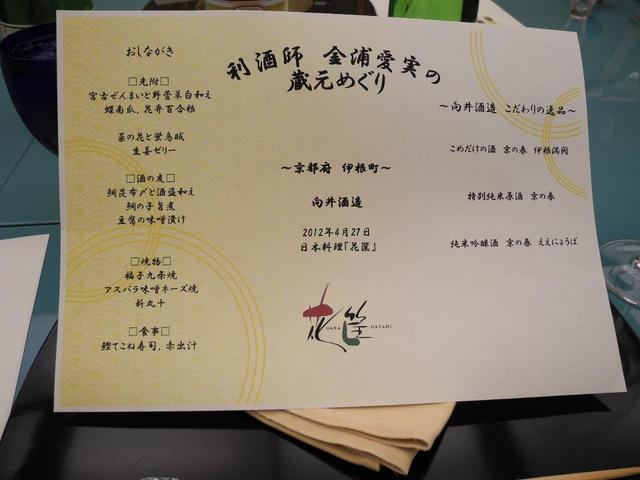 おしながき
□先附□
宮古ぜんまいと野萱草白和え
蝶南瓜、花弁百合根
菜の花と蛍烏賊
生姜ゼリー
□酒の友□
鯛昆布〆と酒盗和え
鯛の子旨煮
豆腐の味噌漬け
□焼物□
福子九条焼
アスパラ味噌マヨネーズ焼
新丸十
□食事□
鰹てこね寿司、赤出汁
利酒師 金浦愛実の
蔵元めぐり
～京都府 伊根町～
向井酒造
2012年4月27日
日本料理「花筐」
花筐
HANA GATAMI
～向井酒造 こだわりの逸品～
こめだけの酒 京の春 伊根満開
特別純米原酒 京の春
純米吟醸酒 京の春 ええにょうぼ